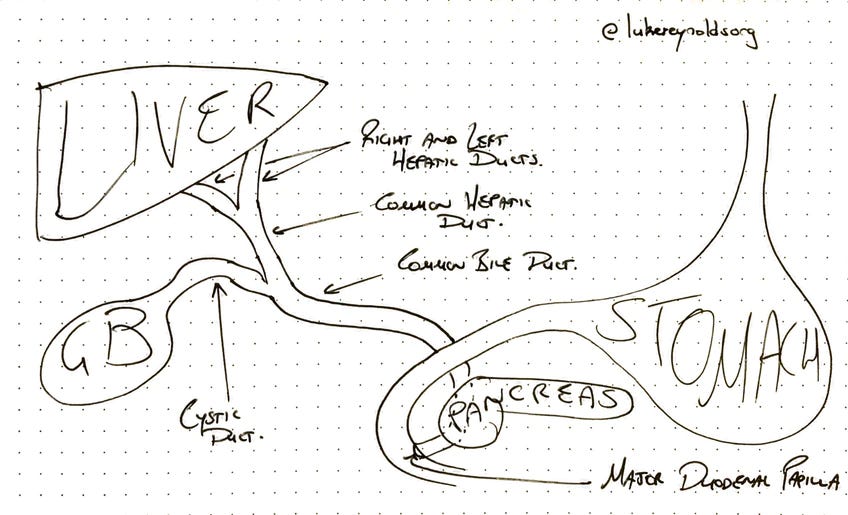 @lukereynoldsorg
LIVER
RIGHT AND LEFT
HEPATIC DUCTS.
COMMON HEPATIC
DUCT.
COMMON BILE DUCT.
STOMACH
GB
PANCREAS
CYSTIC
DUCT.
MAJOR DUODENAL PAPILLA